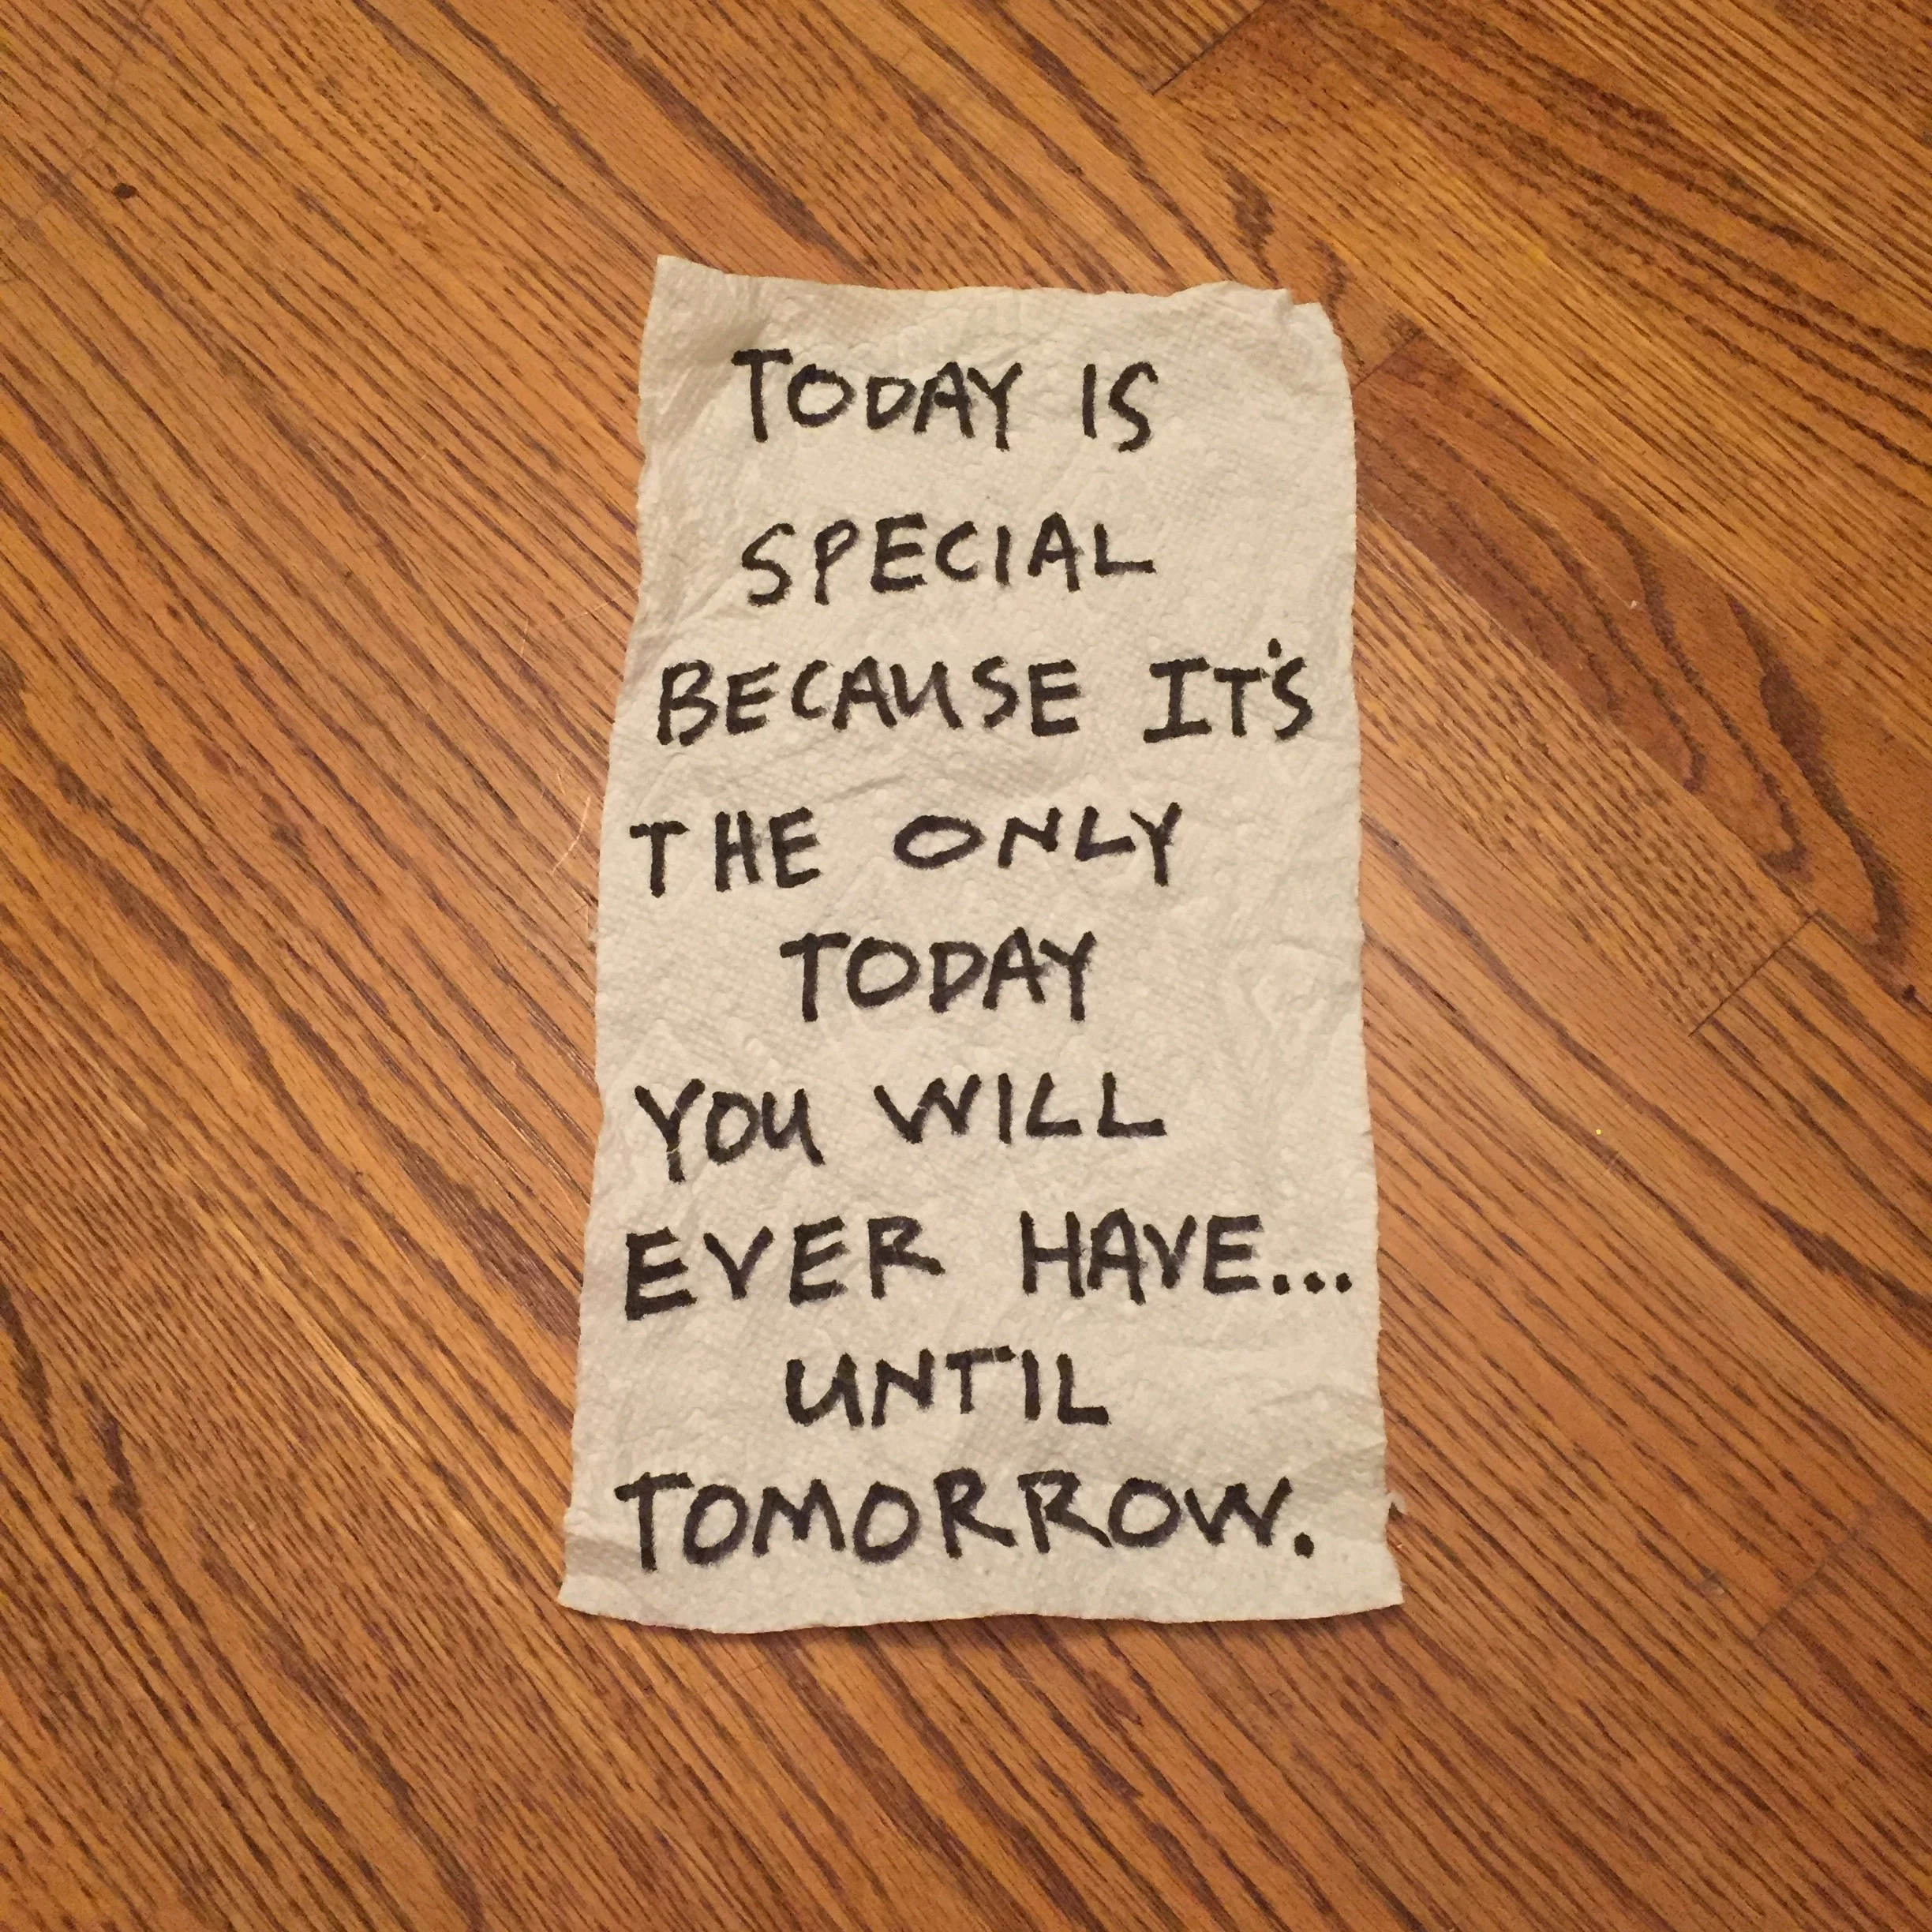 TODAY IS
SPECIAL
BECAUSE IT'S
THE ONLY
TODAY
YOU WILL
EVER HAVE...
UNTIL
TOMORROW.